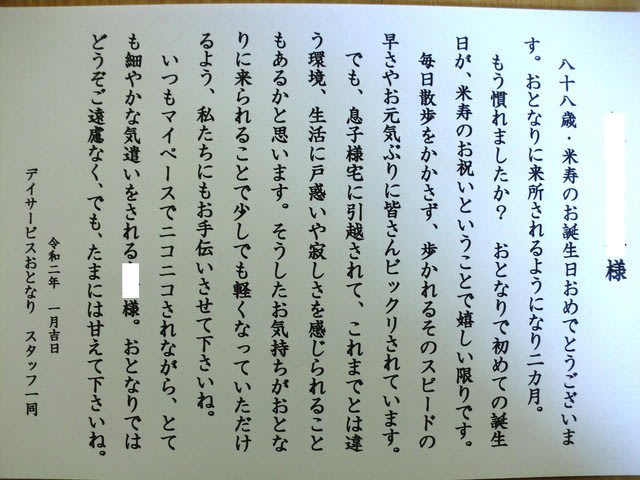 様
八十八歳・米寿のお誕生日おめでとうございま
す。おとなりに来所されるようになり二カ月。
もう慣れましたか？　おとなりで初めての誕生
日が、米寿のお祝いということで嬉しい限りです。
毎日散歩をかかさず、歩かれるそのスピードの
早さやお元気ぶりに皆さんビックリされています。
でも、息子様宅に引越されて、これまでとは違
う環境、生活に戸惑いや寂しさを感じられること
もあるかと思います。そうしたお気持ちがおとな
りに来られることで少しでも軽くなっていただけ
るよう、私たちにもお手伝いさせて下さいね。
いつもマイペースでニコニコされながら、とて
も細やかな気遣いをされる　様。おとなりでは
どうぞご遠慮なく、でも、たまには甘えて下さいね。
令和二年　一月吉日
デイサービスおとなり　スタッフ一同